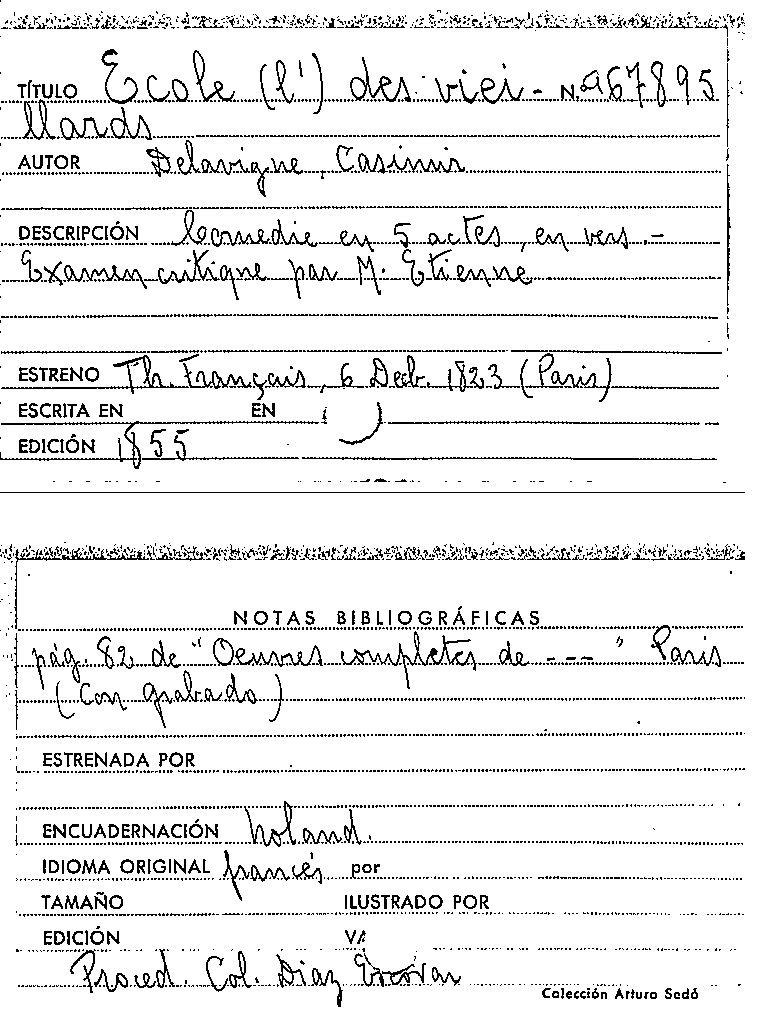 TÍTULO Ecole (l') des viei- N.º 67895
llards
AUTOR Delavigne, Casimir
DESCRIPCIÓN Comedie en 5 actes, en vers.-
Examen critique par M. Etienne
ESTRENO Th. Français, 6 Decb. 1823 (Paris)
ESCRITA EN EN ( )
EDICIÓN 1855
NOTAS BIBLIOGRÁFICAS
pág. 82 de "Oeuvres completes de --- " Paris
(Con grabado)
ESTRENADA POR
ENCUADERNACIÓN holand.
IDIOMA ORIGINAL francés por
TAMAÑO ILUSTRADO POR
EDICIÓN
Proced. Col. Diaz Escovar
Colección Arturo Sedó